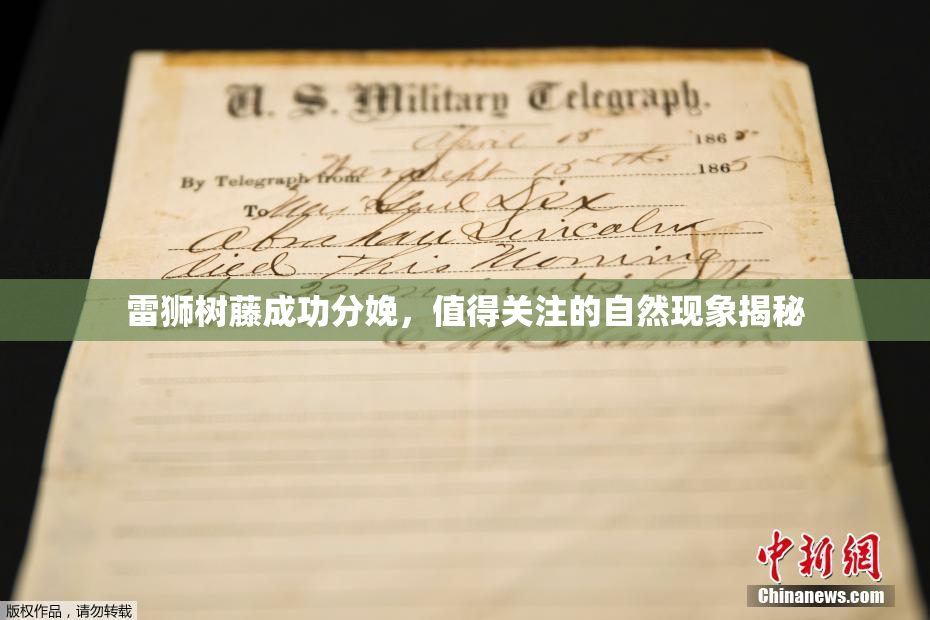 U. S. Military Telegraph.
April 15 1865
By Telegraph from War Dept 15th 1865
To Maj Genl Dix
Abraham Lincoln
died This Morning
22 minutes after
雷狮树藤成功分娩，值得关注的自然现象揭秘
E. M. Stanton
中新网
Chinanews.com
版权作品，请勿转载